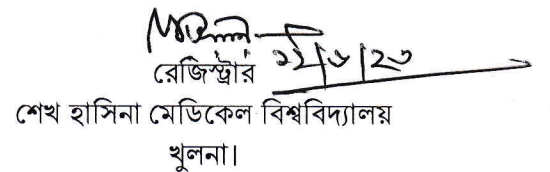 রেজিস্ট্রার
শেখ হাসিনা মেডিকেল বিশ্ববিদ্যালয়
খুলনা।